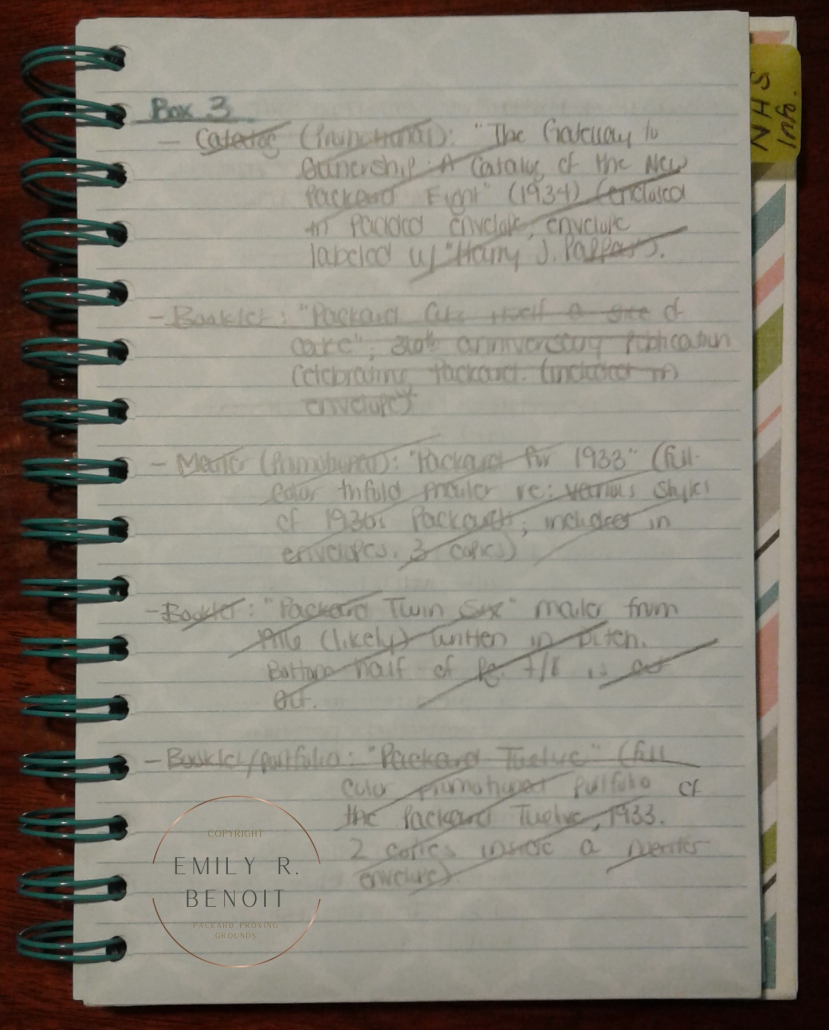 Box 3
- Catalog (Promotional): "The Gateway to
Ownership: A Catalog of the New
Packard Eight" (1934) (enclosed
in padded envelope, envelope
labeled w/ "Harry J. Pappas").
- Booklet: "Packard Cuts Itself a of
cake"; anniversary publication
celebrating Packard. (included in
envelope)
- Mailer (Promotional): "Packard for 1933" (full-
color trifold mailer re: various styles
of 1930s Packards; includes in
envelopes. 3 copies)
- Booklet: "Packard Twin Six" mailer from
(likely) written in Dutch.
Bottom half of Pg. 7/8 is cut
out.
- Booklet/portfolio: "Packard Twelve" (full
color promotional portfolio of
the Packard Twelve, 1933.
2 copies inside a
envelope).
COPYRIGHT
EMILY R.
BENOIT
PACKARD PROVING
GROUNDS
SHN